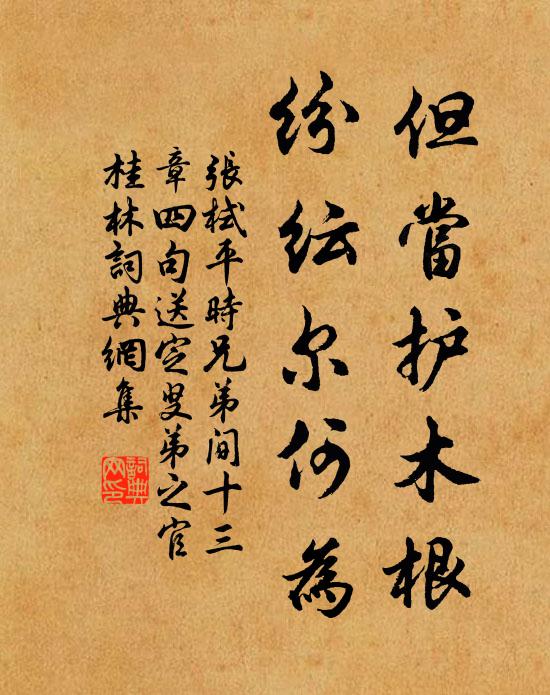 但當护木根
紛紜尔何為
張栻平時兄弟间十三
章四句送定叟弟之官
桂林詞典網集
詞典
网印